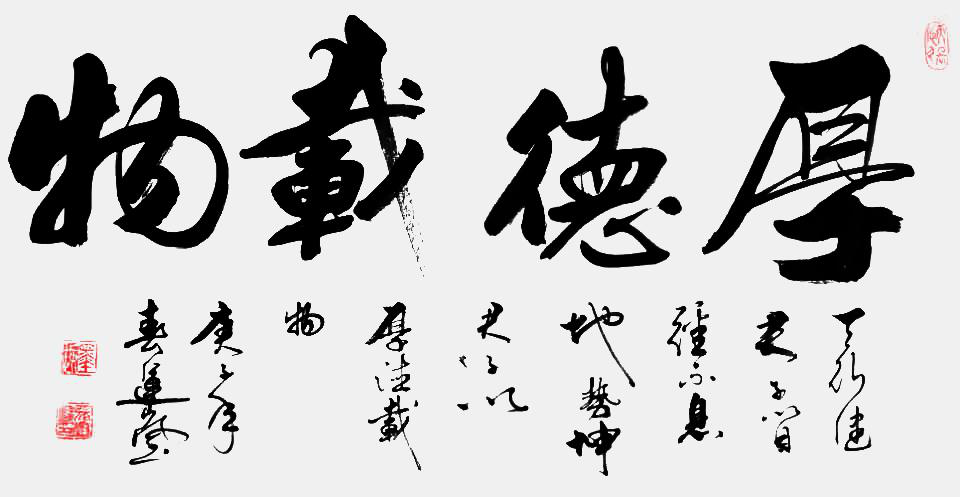 厚德載物
天行健
君子以自
彊不息
地勢坤
君子以
厚德載
物
庚子年
春